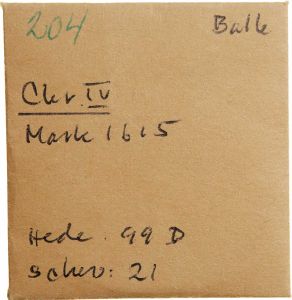 204 Balle
Chr. IV
Mark 1615
Hede. 99 D
Schou: 21